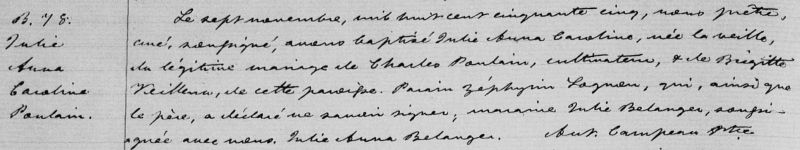 B. 78.
Julie
Anna
Caroline
Poulain.
Le sept novembre, mil huit cent cinquante cinq, nous prêtre,
curé, soussigné, avons baptisé Julie Anna Caroline, née la veille,
du légitime mariage de Charles Poulain, cultivateur, & de Brigitte
Veilleux, de cette paroisse. Parain Zéphyrin Lognon, qui, ainsi que
le père, a déclaré ne savoir signer; maraine Julie Belanger, soussi-
gnée avec nous. Julie Anna Belanger. Ant. Campeau Ptre